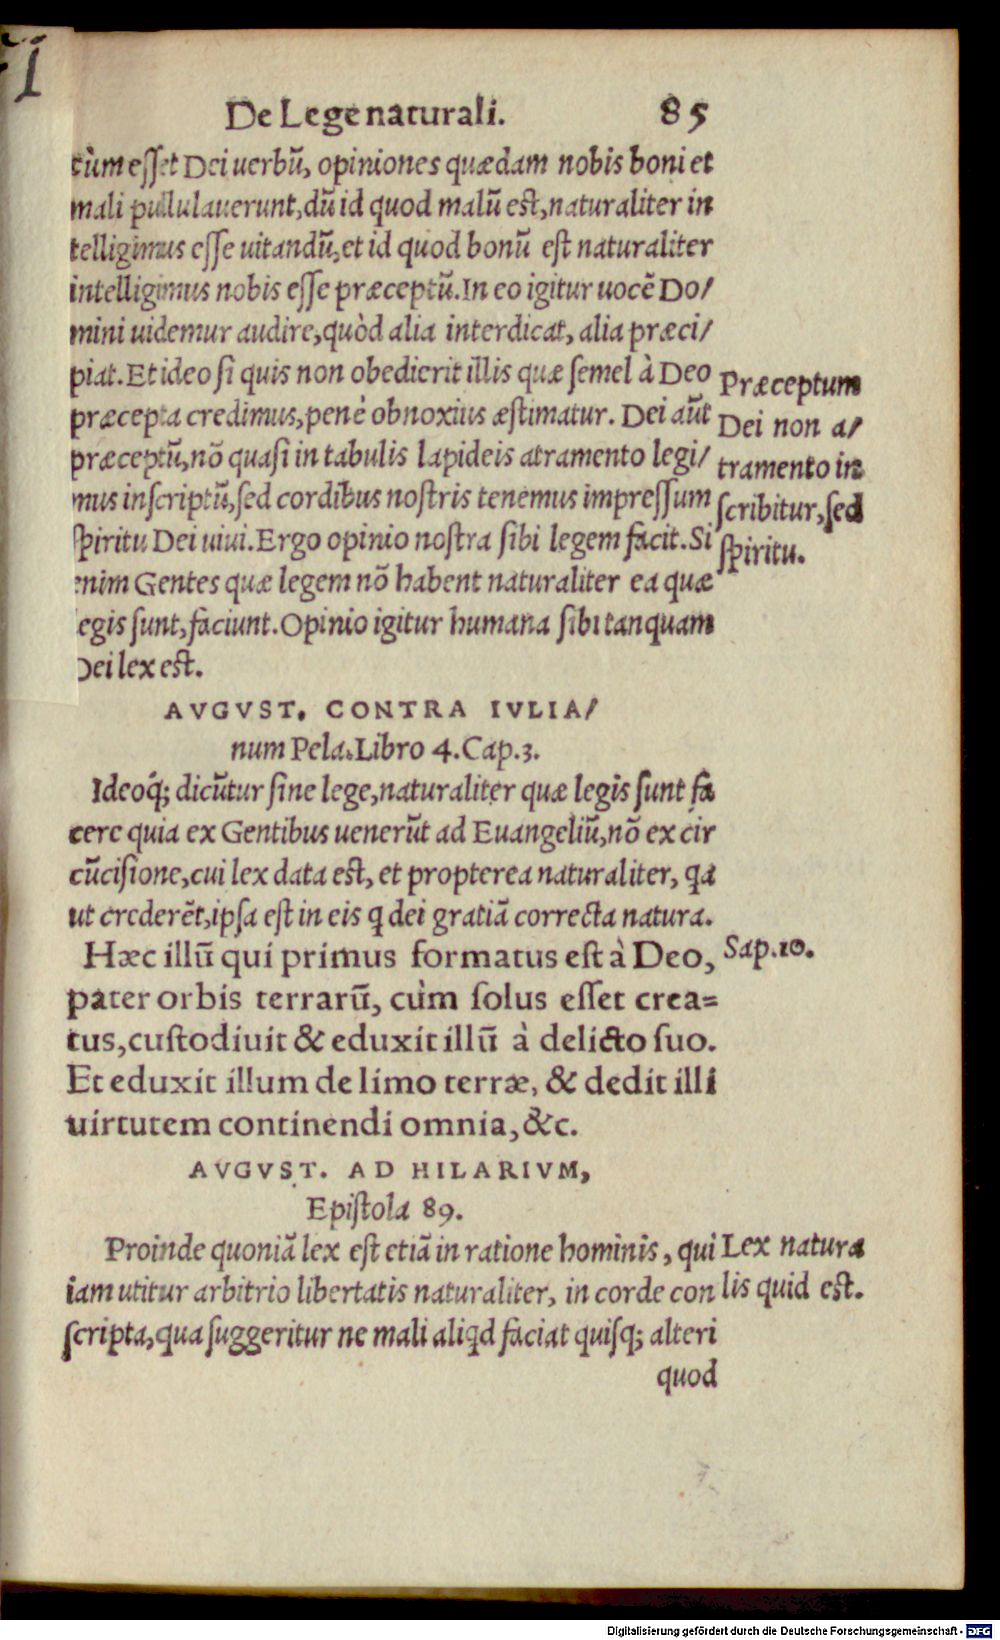 De Lege naturali. 85
cùm esſet Dei uerbũ, opiniones quædam nobis boni et
mali pullulauerunt, dũ id quod malũ est, naturaliter in
telligimus eſſe uitandũ, et id quod bonũ est naturaliter
intelligimus nobis eſſe præceptũ. In eo igitur uocẽ Do/
mini uidemur audire, quòd alia interdicat, alia præci/
piat. Et ideo ſi quis non obedierit illis quæ ſemel à Deo
præcepta credimus, penè obnoxius æstimatur. Dei aũt
præceptũ, nõ quaſi in tabulis lapideis atramento legi/
mus inſcriptũ, ſed cordibus nostris tenemus impreſſum
ſpiritu Dei uiui. Ergo opinio nostra ſibi legem facit. Si
enim Gentes quæ legem nõ habent naturaliter ea quæ
legis ſunt, faciunt. Opinio igitur humana ſibi tanquam
Dei lex est.
Præceptum
Dei non a/
tramento in
ſcribitur, ſed
ſpiritu.
AVGVST. CONTRA IVLIA/
num Pela. Libro 4. Cap. 3.
Ideoq́; dicũtur ſine lege, naturaliter quæ legis ſunt fa
cere quia ex Gentibus uenerũt ad Euangeliũ, nõ ex cir
cũciſione, cui lex data est, et propterea naturaliter, qa
ut crederẽt, ipſa est in eis q dei gratiã correcta natura.
Hæc illũ qui primus formatus eſt à Deo,
pater orbis terrarũ, cùm ſolus eſſet crea=
tus, cuſtodiuit & eduxit illũ à delicto ſuo.
Et eduxit illum de limo terræ, & dedit illi
uirtutem continendi omnia, &c.
Sap. 10.
AVGVST. AD HILARIVM,
Epiſtola 89.
Proinde quoniã lex est etiã in ratione hominis, qui
iam utitur arbitrio libertatis naturaliter, in corde con
ſcripta, qua ſuggeritur ne mali aliqd faciat quiſq; alteri
quod
Lex natura
lis quid est.
Digitalisierung gefördert durch die Deutsche Forschungsgemeinschaft - DFG